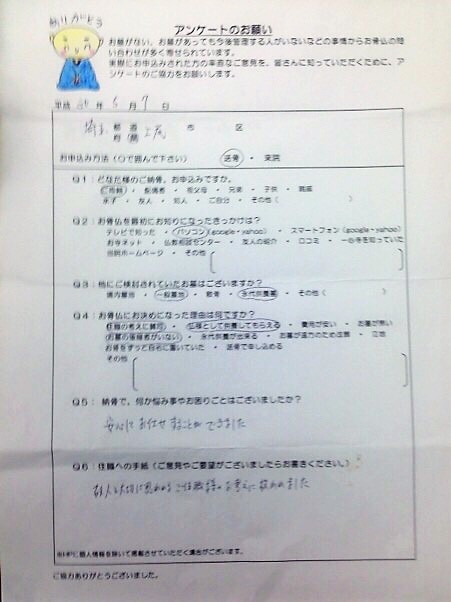 ありがとう
アンケートのお願い
お墓がない、お墓があっても今後管理する人がいないなどの事情からお骨仏の問
い合わせが多く寄せられています。
実際にお申込みされた方の率直なご意見を、皆さんに知っていただくために、ア
ンケートのご協力をお願いします。
平成 年 月 7 日
埼玉 都 道 府 県 上尾 市 区
お申込み方法(○で囲んで下さい) 送骨 ・ 来院
Q1：どなた様のご納骨、お申込みですか。
ご両親 ・ 配偶者 ・ 祖父母 ・ 兄弟 ・ 子供 ・ 親戚
水子 ・ 友人 ・ 知人 ・ ご自分 ・ その他(
Q2：お骨仏を最初にお知りになったきっかけは？
テレビで知った ・ パソコン(google・yahoo) ・ スマートフォン(google・yahoo)
お寺ネット ・ 仏教相談センター ・ 友人の紹介 ・ 口コミ ・ 一心寺を知っていた
当院ホームページ ・ その他
Q3：他にご検討されていたお墓はございますか？
境内墓地 ・ 一般墓地 ・ 散骨 ・ 永代供養墓 ・ その他(
Q4：お骨仏にお決めになった理由は何ですか？
住職の考えに賛同 ・ 仏様として供養してもらえる ・ 費用が安い ・ お墓が無い
お墓の後継者がいない ・ 永代供養が出来る ・ お墓が遠方のため改葬 ・ 立地
お骨をずっと自宅に置いていた ・ 送骨で申し込める
その他
Q5： 納骨で、何か悩み事やお困りごとはございましたか？
安心してお任せすることができました
Q6：住職への手紙(ご意見やご要望がございましたらお書きください。)
故人を大切に思われるご住職様のお考えに救われました
※HPに個人情報を除いて掲載させていただく場合がございます。
ご協力ありがとうございました。